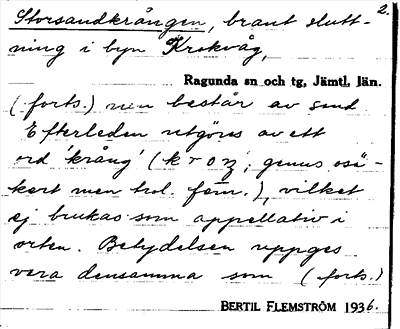 2.
Storsandkrången, brant slutt-
ning i byn Krokvåg,
Ragunda sn och tg, Jämtl. län.
(forts.) nen består av sand
Efterleden utgöres av ett
ord 'krång' (krɔŋ; genus osä-
kert men trol. fem.), vilket
ej brukas som appellativ i
orten. Betydelsen uppges
vara densamma som (forts.)
BERTIL FLEMSTRÖM 1936.